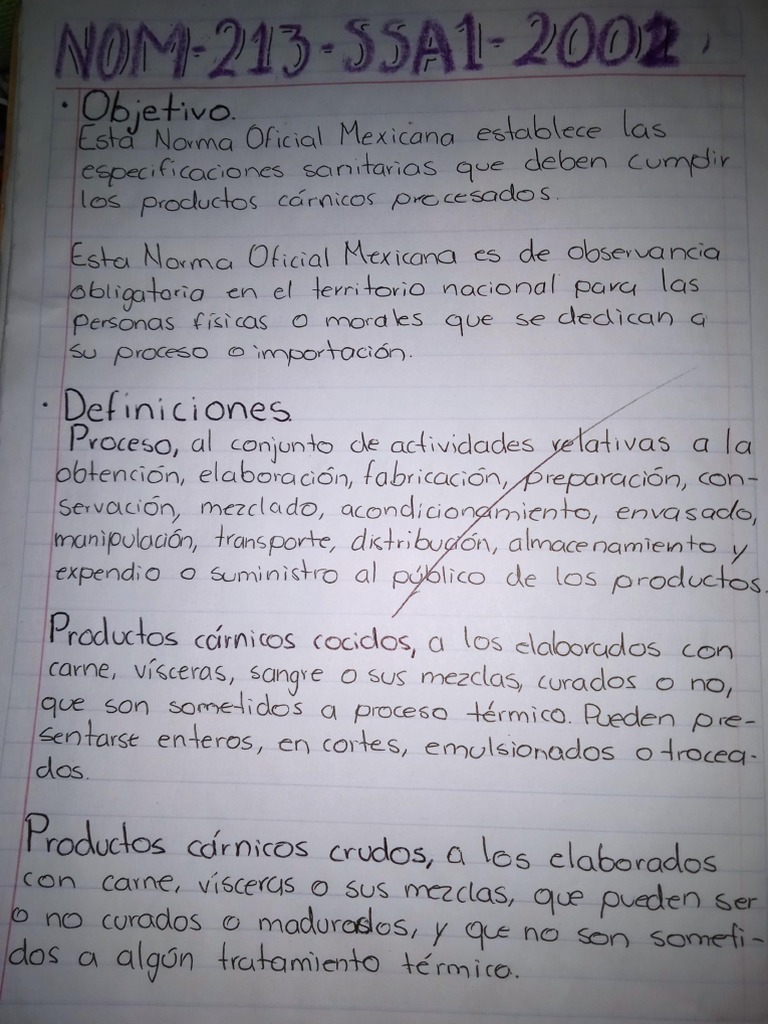 NOM-213-SSA1-2002
· Objetivo.
Esta Norma Oficial Mexicana establece las
especificaciones sanitarias que deben cumplir
los productos cárnicos procesados.
Esta Norma Oficial Mexicana es de observancia
obligatoria en el territorio nacional para las
personas físicas o morales que se dedican a
su proceso o importación.
· Definiciones.
Proceso, al conjunto de actividades relativas a la
obtención, elaboración, fabricación, preparación, con-
servación, mezclado, acondicionamiento, envasado,
manipulación, transporte, distribución, almacenamiento y
expendio o suministro al público de los productos.
Productos cárnicos cocidos, a los elaborados con
carne, vísceras, sangre o sus mezclas, curados o no,
que son sometidos a proceso térmico. Pueden pre-
sentarse enteros, en cortes, emulsionados o trocea-
dos.
Productos cárnicos crudos, a los elaborados
con carne, vísceras o sus mezclas, que pueden ser
o no curados o madurados, y que no son someti-
dos a algún tratamiento térmico.